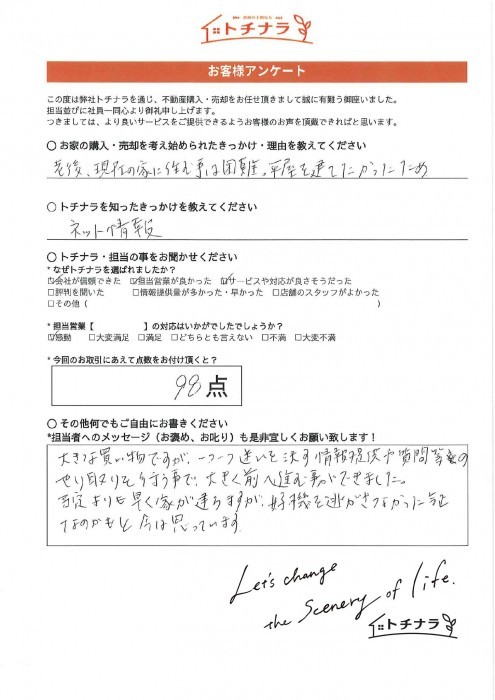 トチナラ
お客様アンケート
この度は弊社トチナラを通じ、不動産購入・売却をお任せ頂きまして誠に有難う御座いました。
担当並びに社員一同心より御礼申し上げます。
つきましては、より良いサービスをご提供できるようお客様のお声を頂戴できればと思います。
○ お家の購入・売却を考え始められたきっかけ・理由を教えてください
老後、現在の家に住む事は困難。平屋を建てたかったため
○ トチナラを知ったきっかけを教えてください
ネット情報
○ トチナラ・担当の事をお聞かせください
* なぜトチナラを選ばれましたか？
☑会社が信頼できた ☑担当営業が良かった ☑サービスや対応が良さそうだった
□評判を聞いた □情報提供量が多かった・早かった □店舗のスタッフがよかった
□その他（ ）
* 担当営業【 】の対応はいかがでしたでしょうか？
☑感動 □大変満足 □満足 □どちらとも言えない □不満 □大変不満
* 今回のお取引にあえて点数をお付け頂くと？
98 点
○ その他何でもご自由にお書きください
*担当者へのメッセージ（お褒め、お叱り）も是非宜しくお願い致します！
大きな買い物ですが、一つ一つ迷いを決す情報提供や質問等の
やり取りを行う事で、大きく前へ進む事ができました。
予定よりも早く家が建ちますが、好機を逃がさなかった
なのかもと今は思っています
Let's change
the Scenery of life.
トチナラ